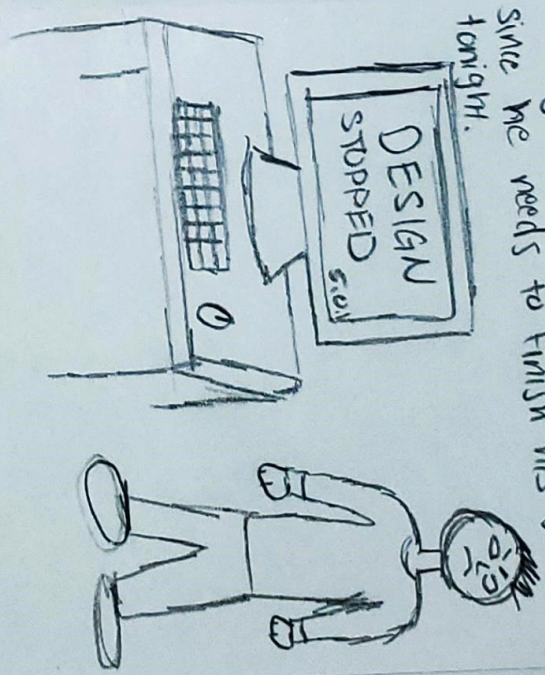 since he needs to finish his
tonight.
DESIGN
STOPPED
5.0.1